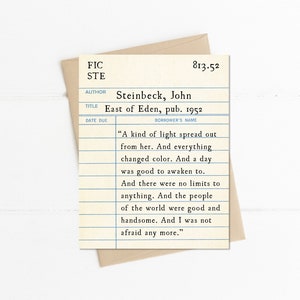 FIC 813.52
STE
AUTHOR Steinbeck, John
TITLE East of Eden, pub. 1952
DATE DUE BORROWER'S NAME
“A kind of light spread out
from her. And everything
changed color. And a day
was good to awaken to.
And there were no limits to
anything. And the people
of the world were good and
handsome. And I was not
afraid any more.”